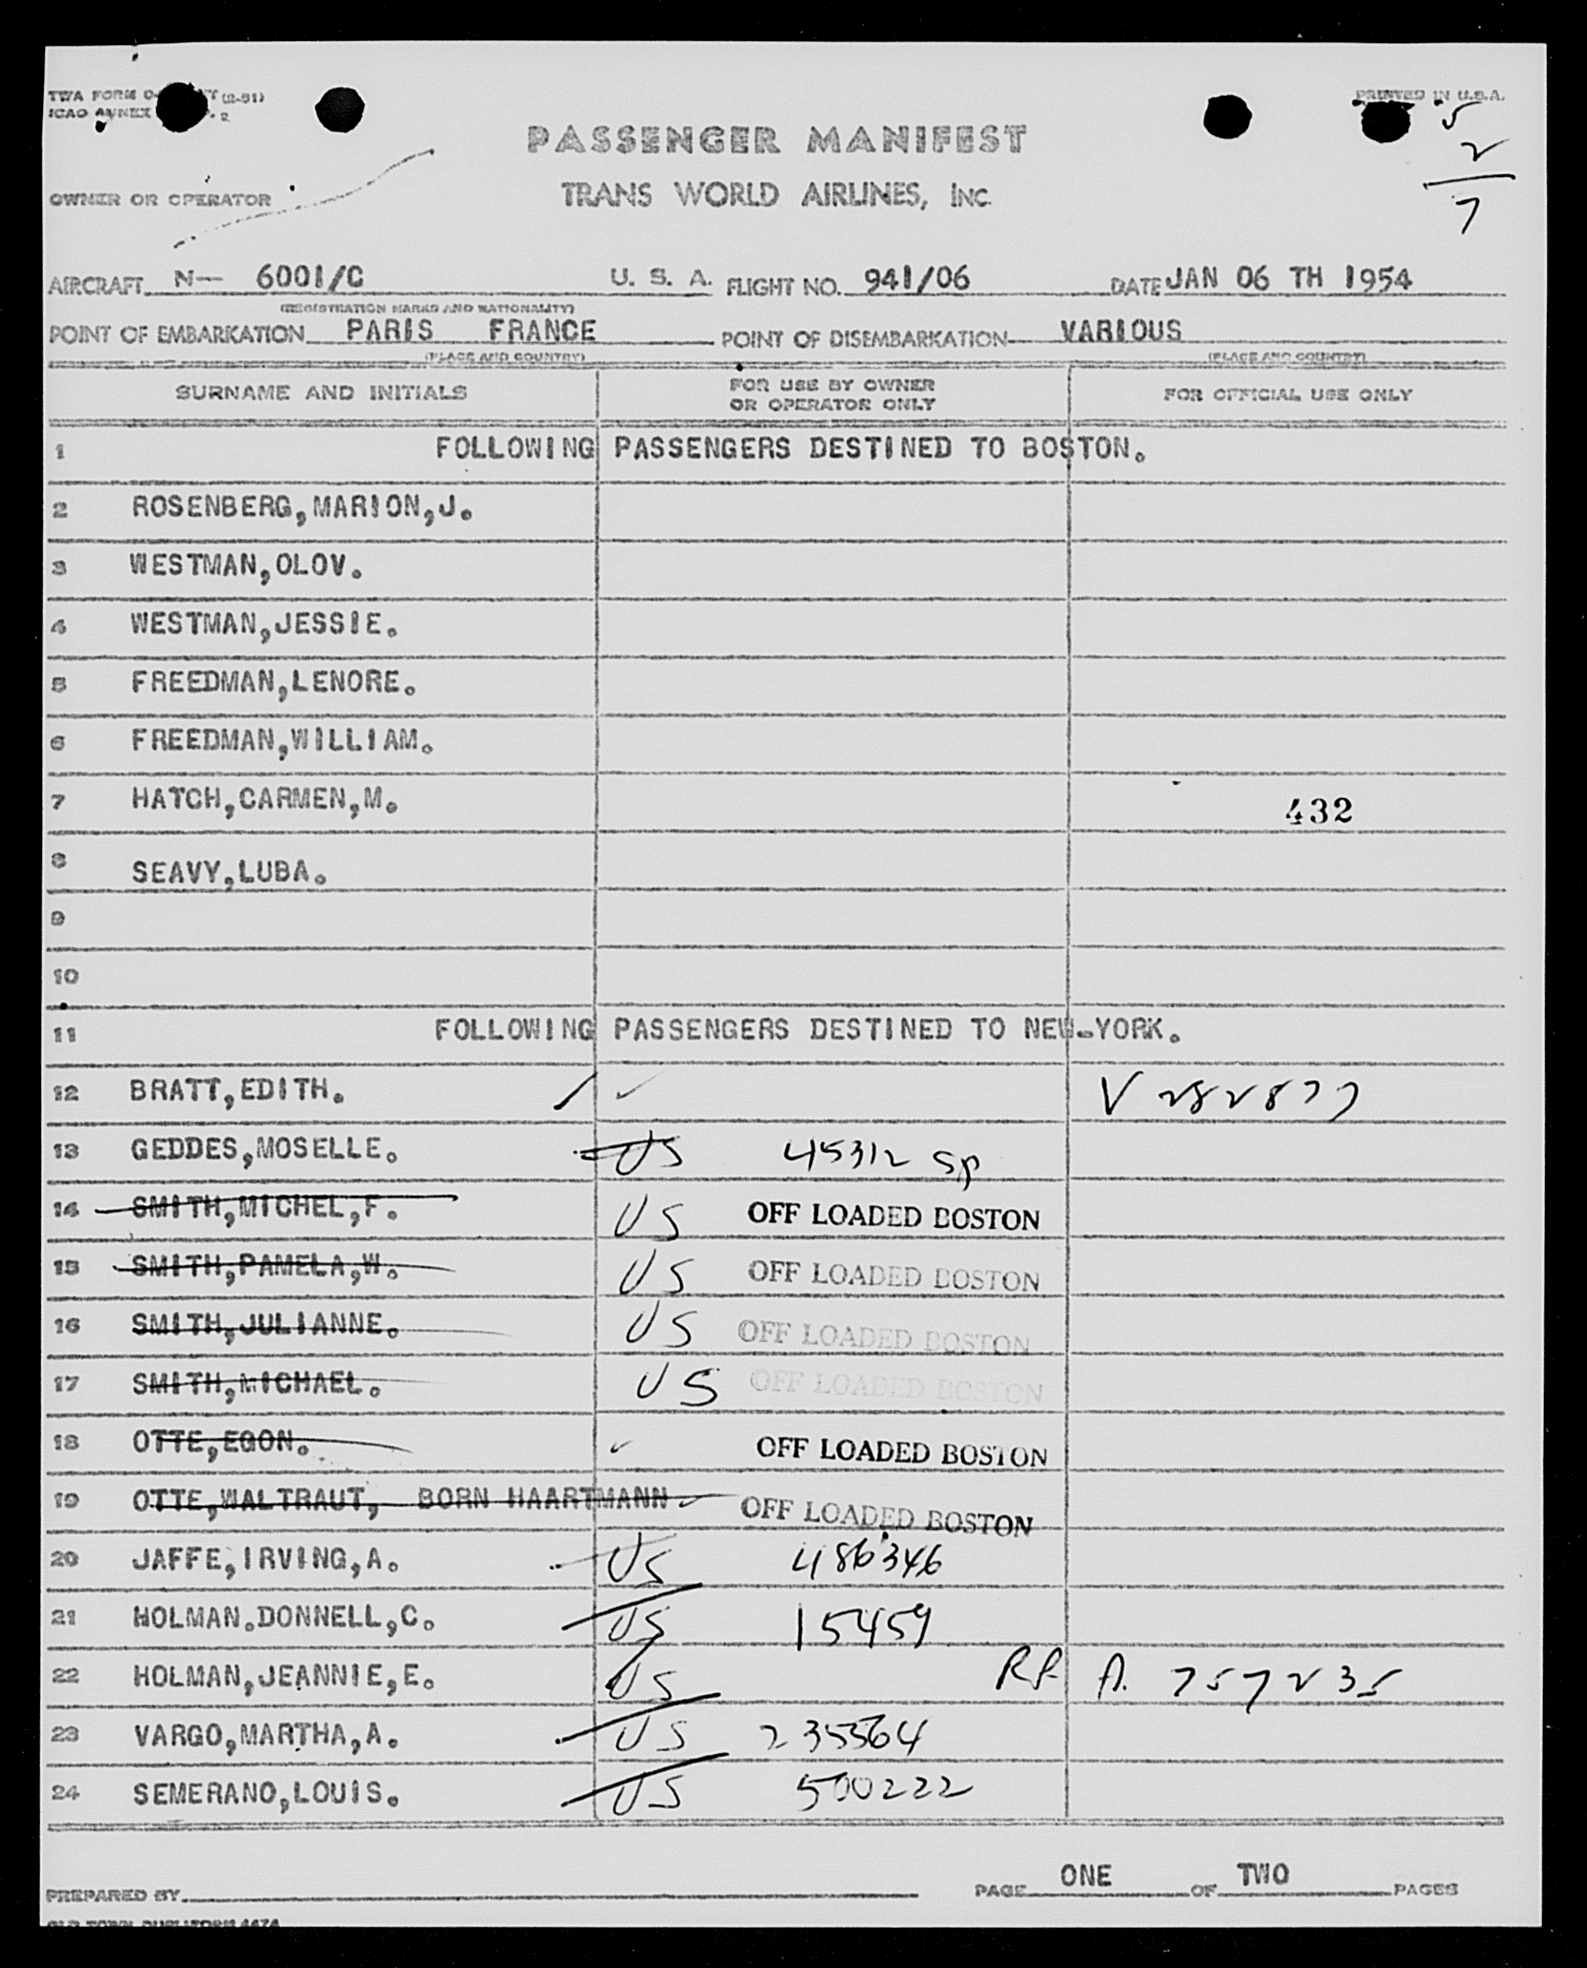 TWA FORM
(2-51)
PRINTED IN U.S.A.
ICAO ANNEX
2
5
2
7
PASSENGER MANIFEST
OWNER OR OPERATOR
TRANS WORLD AIRLINES, INC.
AIRCRAFT N— 6001/C U. S. A. FLIGHT NO. 941/06 DATE JAN 06 TH 1954
(REGISTRATION MARKS AND NATIONALITY)
POINT OF EMBARKATION PARIS FRANCE POINT OF DISEMBARKATION VARIOUS
(PLACE AND COUNTRY) (PLACE AND COUNTRY)
SURNAME AND INITIALS FOR USE BY OWNER OR OPERATOR ONLY FOR OFFICIAL USE ONLY
1 FOLLOWING PASSENGERS DESTINED TO BOSTON.
2 ROSENBERG,MARION,J.
3 WESTMAN,OLOV.
4 WESTMAN,JESSIE.
5 FREEDMAN,LENORE.
6 FREEDMAN,WILLIAM.
7 HATCH,CARMEN,M. 432
8 SEAVY,LUBA.
9
10
11 FOLLOWING PASSENGERS DESTINED TO NEW-YORK.
12 BRATT,EDITH. ✓ V 282877
13 GEDDES,MOSELLE. US 45312 SP
14 SMITH,MICHEL,F. US OFF LOADED BOSTON
15 SMITH,PAMELA,W. US OFF LOADED BOSTON
16 SMITH,JULIANNE. US OFF LOADED BOSTON
17 SMITH,MICHAEL. US OFF LOADED BOSTON
18 OTTE,EGON. ✓ OFF LOADED BOSTON
19 OTTE,WALTRAUT, BORN HAARTMANN ✓ OFF LOADED BOSTON
20 JAFFE,IRVING,A. US 486346
21 HOLMAN.DONNELL,C. US 15459
22 HOLMAN,JEANNIE,E. US R.P. A. 757235
23 VARGO,MARTHA,A. US 235364
24 SEMERANO,LOUIS. US 500222
PREPARED BY PAGE ONE OF TWO PAGES